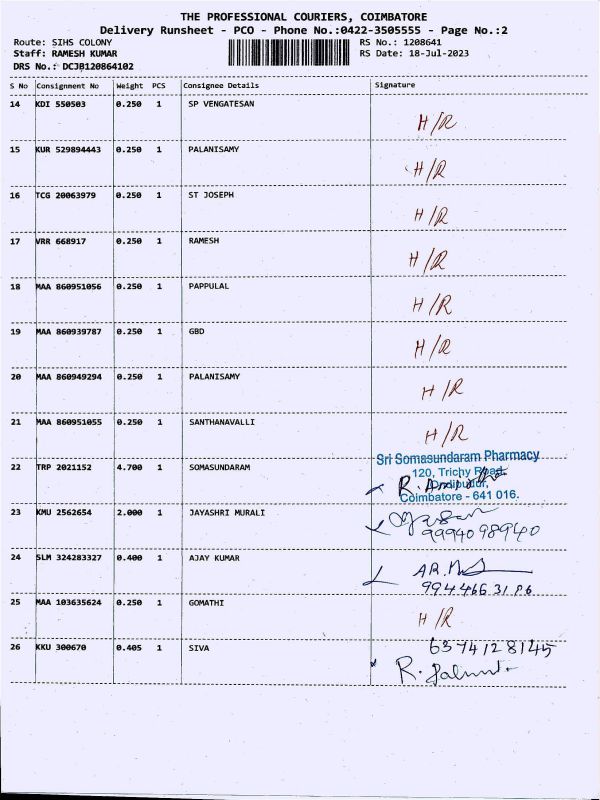 THE PROFESSIONAL COURIERS, COIMBATORE
Delivery Runsheet - PCO - Phone No.:0422-3505555 - Page No.:2
Route: SIHS COLONY RS No.: 1208641
Staff: RAMESH KUMAR RS Date: 18-Jul-2023
DRS No.: DCJB120864102
S No Consignment No Weight PCS Consignee Details Signature
14 KDI 550503 0.250 1 SP VENGATESAN H/R
15 KUR 529894443 0.250 1 PALANISAMY H/R
16 TCG 20063979 0.250 1 ST JOSEPH H/R
17 VRR 668917 0.250 1 RAMESH H/R
18 MAA 860951056 0.250 1 PAPPULAL H/R
19 MAA 860939787 0.250 1 GBD H/R
20 MAA 860949294 0.250 1 PALANISAMY H/R
21 MAA 860951055 0.250 1 SANTHANAVALLI H/R
Sri Somasundaram Pharmacy
22 TRP 2021152 4.700 1 SOMASUNDARAM 120, Trichy Road,
R.
Coimbatore - 641 016.
23 KMU 2562654 2.000 1 JAYASHRI MURALI
9994098940
24 SLM 324283327 0.400 1 AJAY KUMAR AR.
25 MAA 103635624 0.250 1 GOMATHI H/R
26 KKU 300670 0.405 1 SIVA 6374128145
R.